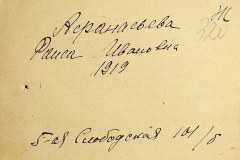 Афанасьева
Раиса Ивановна
1919
5-ая Слободская 101/б